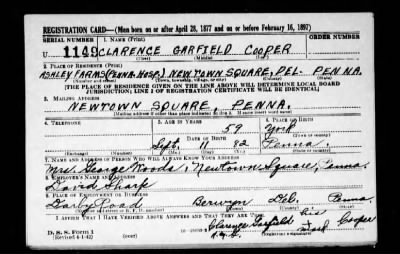 REGISTRATION CARD—(Men born on or after April 28, 1877 and on or before February 16, 1897)
SERIAL NUMBER 1. NAME (Print) ORDER NUMBER
U 1149 CLARENCE GARFIELD COOPER
(First) (Middle) (Last)
2. PLACE OF RESIDENCE (Print)
ASHLEY FARMS (PENNA. HOSP.) NEWTOWN SQUARE, DEL. PENNA.
(Number and street) (Town, township, village, or city) (County) (State)
[THE PLACE OF RESIDENCE GIVEN ON THE LINE ABOVE WILL DETERMINE LOCAL BOARD
JURISDICTION; LINE 2 OF REGISTRATION CERTIFICATE WILL BE IDENTICAL]
3. MAILING ADDRESS
NEWTOWN SQUARE, PENNA.
[Mailing address if other than place indicated on line 2. If same insert word same]
4. TELEPHONE 5. AGE IN YEARS 6. PLACE OF BIRTH
59 York
DATE OF BIRTH (Town or county)
Sept. 11 82 Penna.
(Exchange) (Number) (Mo.) (Day) (Yr.) (State or country)
7. NAME AND ADDRESS OF PERSON WHO WILL ALWAYS KNOW YOUR ADDRESS
Mrs. George Woods, Newtown Square, Penna.
8. EMPLOYER'S NAME AND ADDRESS
David Sharp
9. PLACE OF EMPLOYMENT OR BUSINESS
Darby Road Berwyn Del. Penna.
(Number and street or R. F. D. number) (Town) (County) (State)
I AFFIRM THAT I HAVE VERIFIED ABOVE ANSWERS AND THAT THEY ARE TRUE.
D. S. S. Form 1 Clarence Garfield his Cooper
(Revised 4-1-42) mark